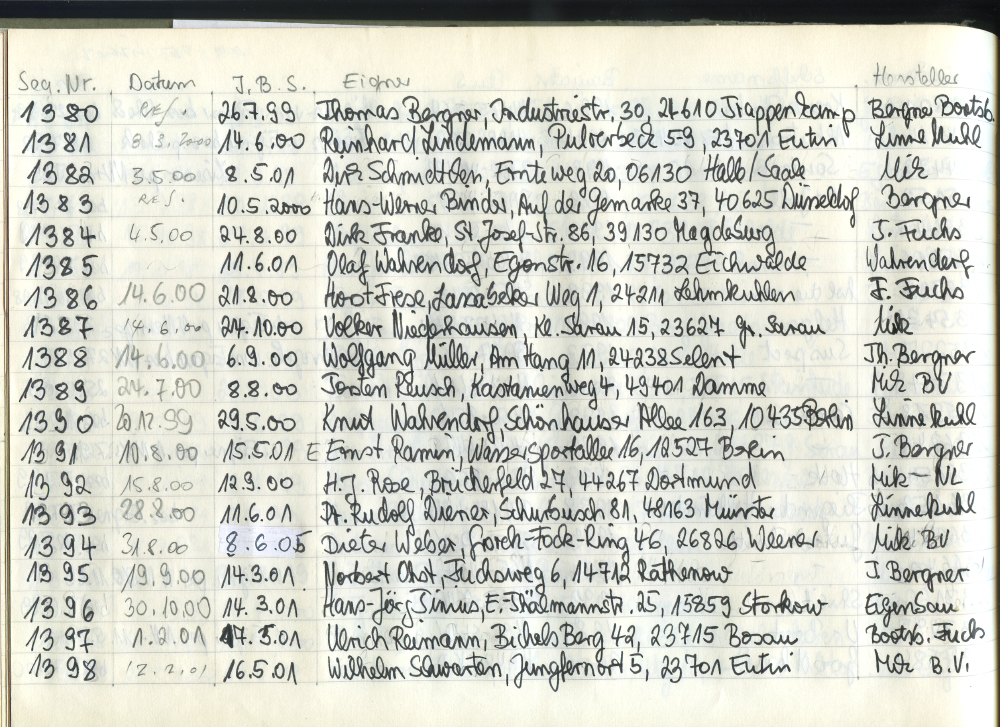 Seg.Nr. Datum J.B.S. Eigner Hersteller
1380 RES 26.7.99 Thomas Bergner, Industriestr. 30, 24610 Trappenkamp Bergner Bootsb.
1381 8.3.2000 14.6.00 Reinhard Lindemann, Pulverbeck 59, 23701 Eutin Linnekuhl
1382 3.5.00 8.5.01 Dirk Schmidtben, Ernteweg 20, 06130 Halle/Saale Mik
1383 RES. 10.5.2000 Hans-Werner Binder, Auf der Gemarke 37, 40625 Düsseldof Bergner
1384 4.5.00 24.8.00 Dirk Franke, St. Josef-Str. 86, 39130 Magdeburg J. Fuchs
1385 11.6.01 Olaf Wahrendorf, Egonstr. 16, 15732 Eichwalde Wahrendorf
1386 14.6.00 21.8.00 Horst Frese, Lassabeker Weg 1, 24211 Lehmkuhlen F. Fuchs
1387 14.6.00 24.10.00 Volker Niederhausen, Kl. Sarau 15, 23627 Gr. Sarau Mik
1388 14.6.00 6.9.00 Wolfgang Müller, Am Hang 11, 24238 Selent Th. Bergner
1389 24.7.00 8.8.00 Torsten Reusch, Kastanienweg 4, 49401 Damme Mik BV
1390 20.12.99 29.5.00 Knut Wahrendorf, Schönhauser Allee 163, 10435 Berlin Linnekuhl
1391 10.8.00 15.5.01 E Ernst Ramin, Wassersportallee 16, 12527 Berlin J. Bergner
1392 15.8.00 12.9.00 H.J. Rose, Brücherfeld 27, 44267 Dortmund Mik NL
1393 28.8.00 11.6.01 Dr. Rudolf Diener, Schurbusch 81, 48163 Münster Linnekuhl
1394 31.8.00 8.6.05 Dieter Weber, Gorch-Fock-Ring 46, 26826 Weener Mik BV
1395 19.9.00 14.3.01 Norbert Ohst, Fuchsweg 6, 14712 Rathenow J. Bergner
1396 30.10.00 14.3.01 Hans-Jörg Timus, E.-Thälmannstr. 25, 15859 Storkow Eigenbau
1397 1.2.01 17.5.01 Ulrich Reimann, Bichels Berg 42, 23715 Bosau Bootsb. Fuchs
1398 12.2.01 16.5.01 Wilhelm Schwarten, Jungfernort 5, 23701 Eutin Mik B.V.